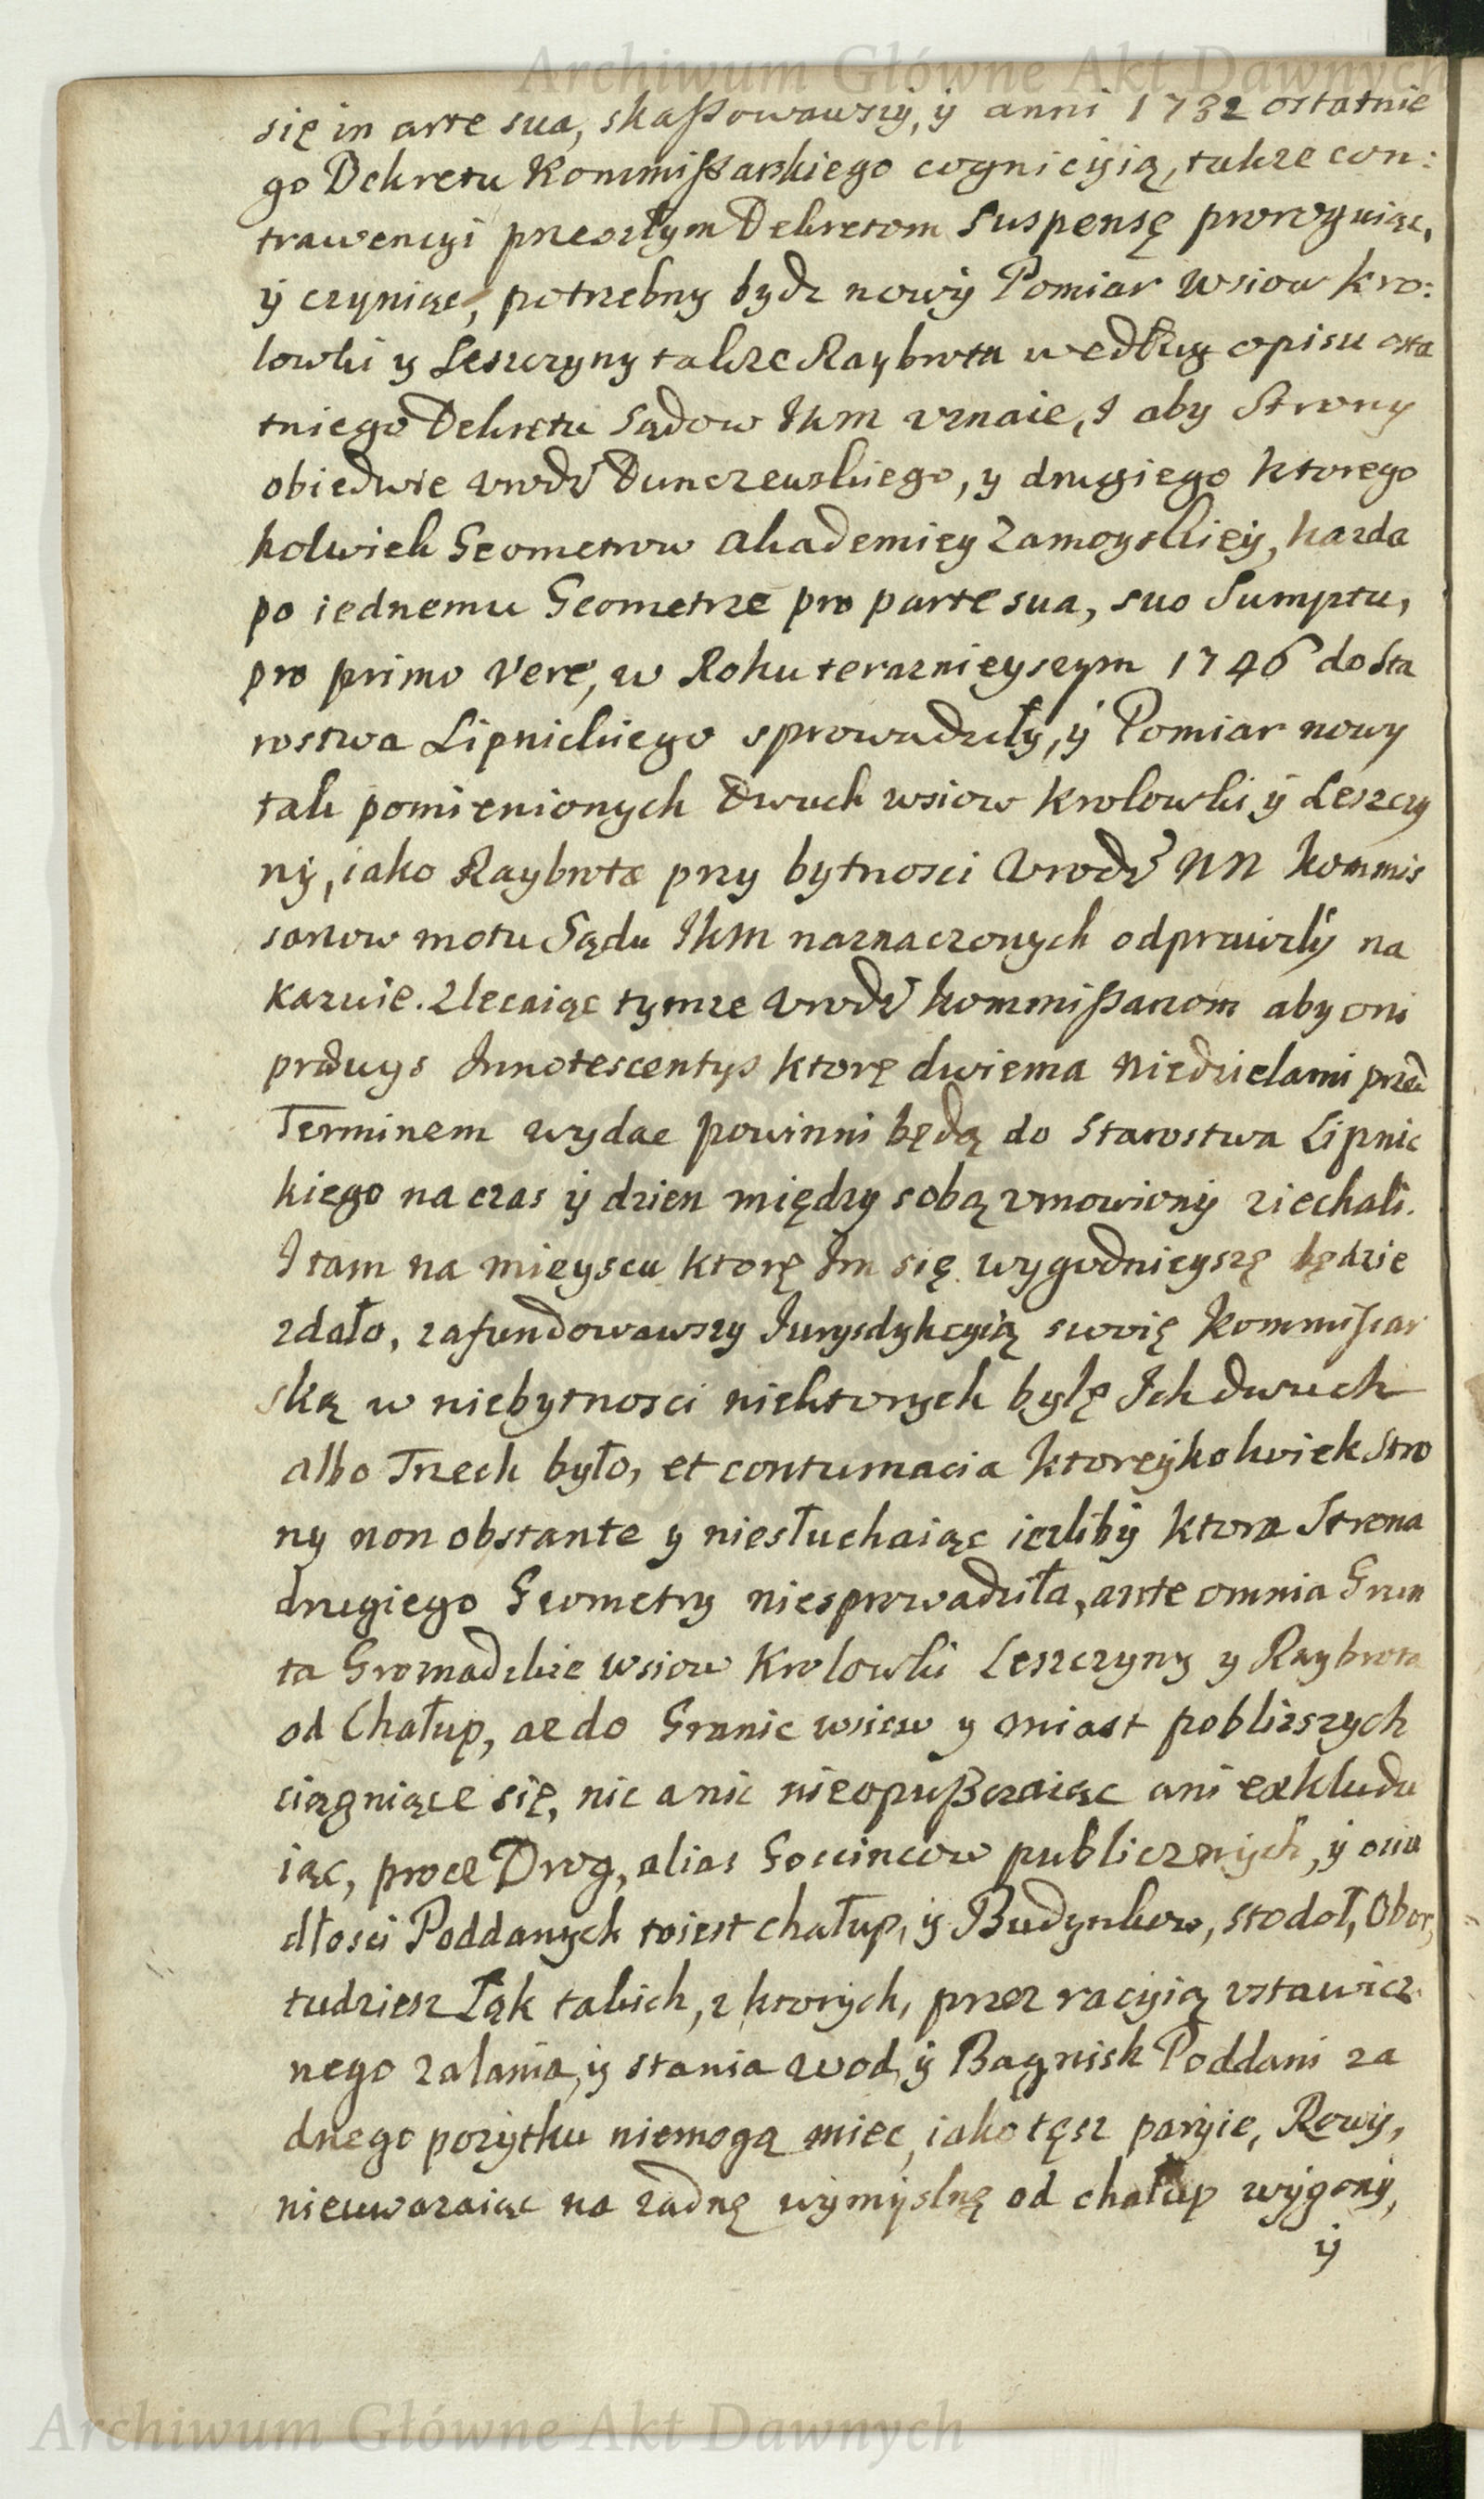 Archiwum Główne Akt Dawnych
się in arte sua, skaßowawszy, ÿ anni 1732 ostatnie
go Dekretu Kommißarskiego cognicÿią, takze con:
trawencyi przeszłym Dekretom suspensę proroguiąc,
ÿ czyniąc, potrzebny bydz nowÿ Pomiar wsiow Kro:
lowki y Leszczyny takze Raybrota według opisu osta
tniego Dekretu Sądow JKM vznaie, I aby Strony
obiedwie vrodź Dunczewskiego, y drugiego ktorego
kolwiek Geometrow Akademiey Zamoyskieÿ, kazda
po iednemu Geometrze pro parte sua, suo Sumptu,
pro primo Vere, w Roku teraznieyszym 1746 do Sta
rostwa Lipnickiego sprowadziły, ÿ Pomiar nowy
tak pomienionych dwuch wsiow Krolowki ÿ Leszczy
nÿ, iako Raybrota przy bytnosci Vrodź NN Kommis
sarzow motu Sądu JKM naznaczonych odprawilÿ na
kazuie. Zlecaiąc tymze Vrodź Kommißarzom aby oni
prævys Innotescentys ktorę dwiema Niedzielami przed
Terminem wydac powinni będą do Starostwa Lipnic
kiego na czas ÿ dzien między sobą vmowionÿ ziechali.
I tam na mieyscu ktorę Im się wygodnieyszę będzie
zdało, zafundowawszy Jurysdykcyią swoię Kommissar
ską w niebytnosci niektorych bylę Ich dwuch
albo Trzech było, et contumacia ktoreÿkolwiek Stro
ny non obstante y niesłuchaiąc iezlibÿ ktora Strona
drugiego Geometry niesprowadziła, ante omnia Grun
ta Gromadzkie wsiow Krolowki Leszczyny y Raybrota
od Chałup, az do Granic wsiow y miast poblizszych
ciągniące się, nic a nic nieopußczaiąc ani exkludu
iąc, procz Drog, alias Goscincow publicznÿch, ÿ osia
dłosci Poddanych toiest chałup, ÿ Budynkow, stodoł, Obor,
tudziesz Łąk takich, z ktorÿch, przez racÿią vstawicz
nego zalania, ÿ stania wod, ÿ Bagnisk Poddani za
dnego pozÿtku niemogą miec, iako tęsz parÿie, Rowÿ,
nieuwazaiąc na zadnę wÿmÿslnę od chałup wÿgonÿ,
ÿ
Archiwum Główne Akt Dawnych